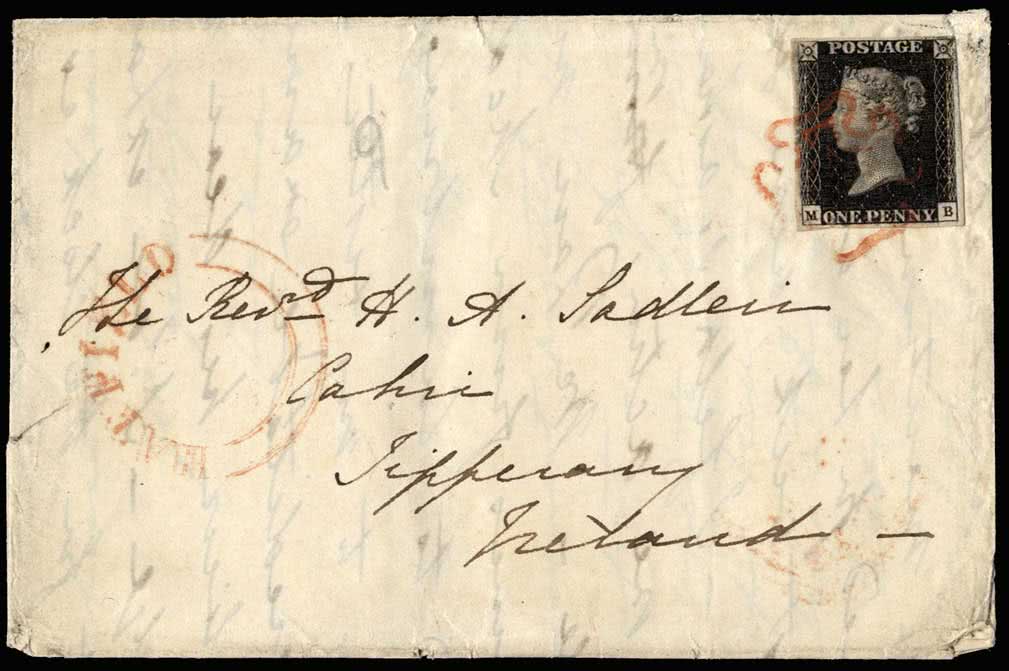 POSTAGE
M ONE PENNY B
The Revd H. A. Sadleir
Cahir
Tipperary
Ireland –